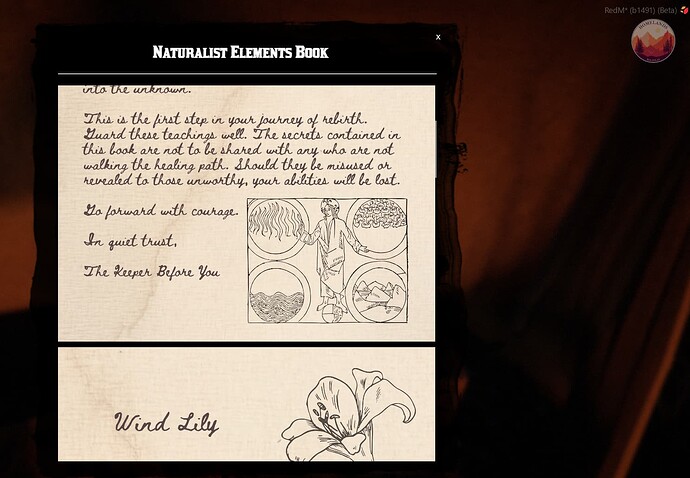 RedM* (b1491) (Beta)
x
Naturalist Elements Book
into the unknown.
This is the first step in your journey of rebirth.
Guard these teachings well. The secrets contained in
this book are not to be shared with any who are not
walking the healing path. Should they be misused or
revealed to those unworthy, your abilities will be lost.
Go forward with courage.
In quiet trust,
The Keeper Before You
Wind Lily